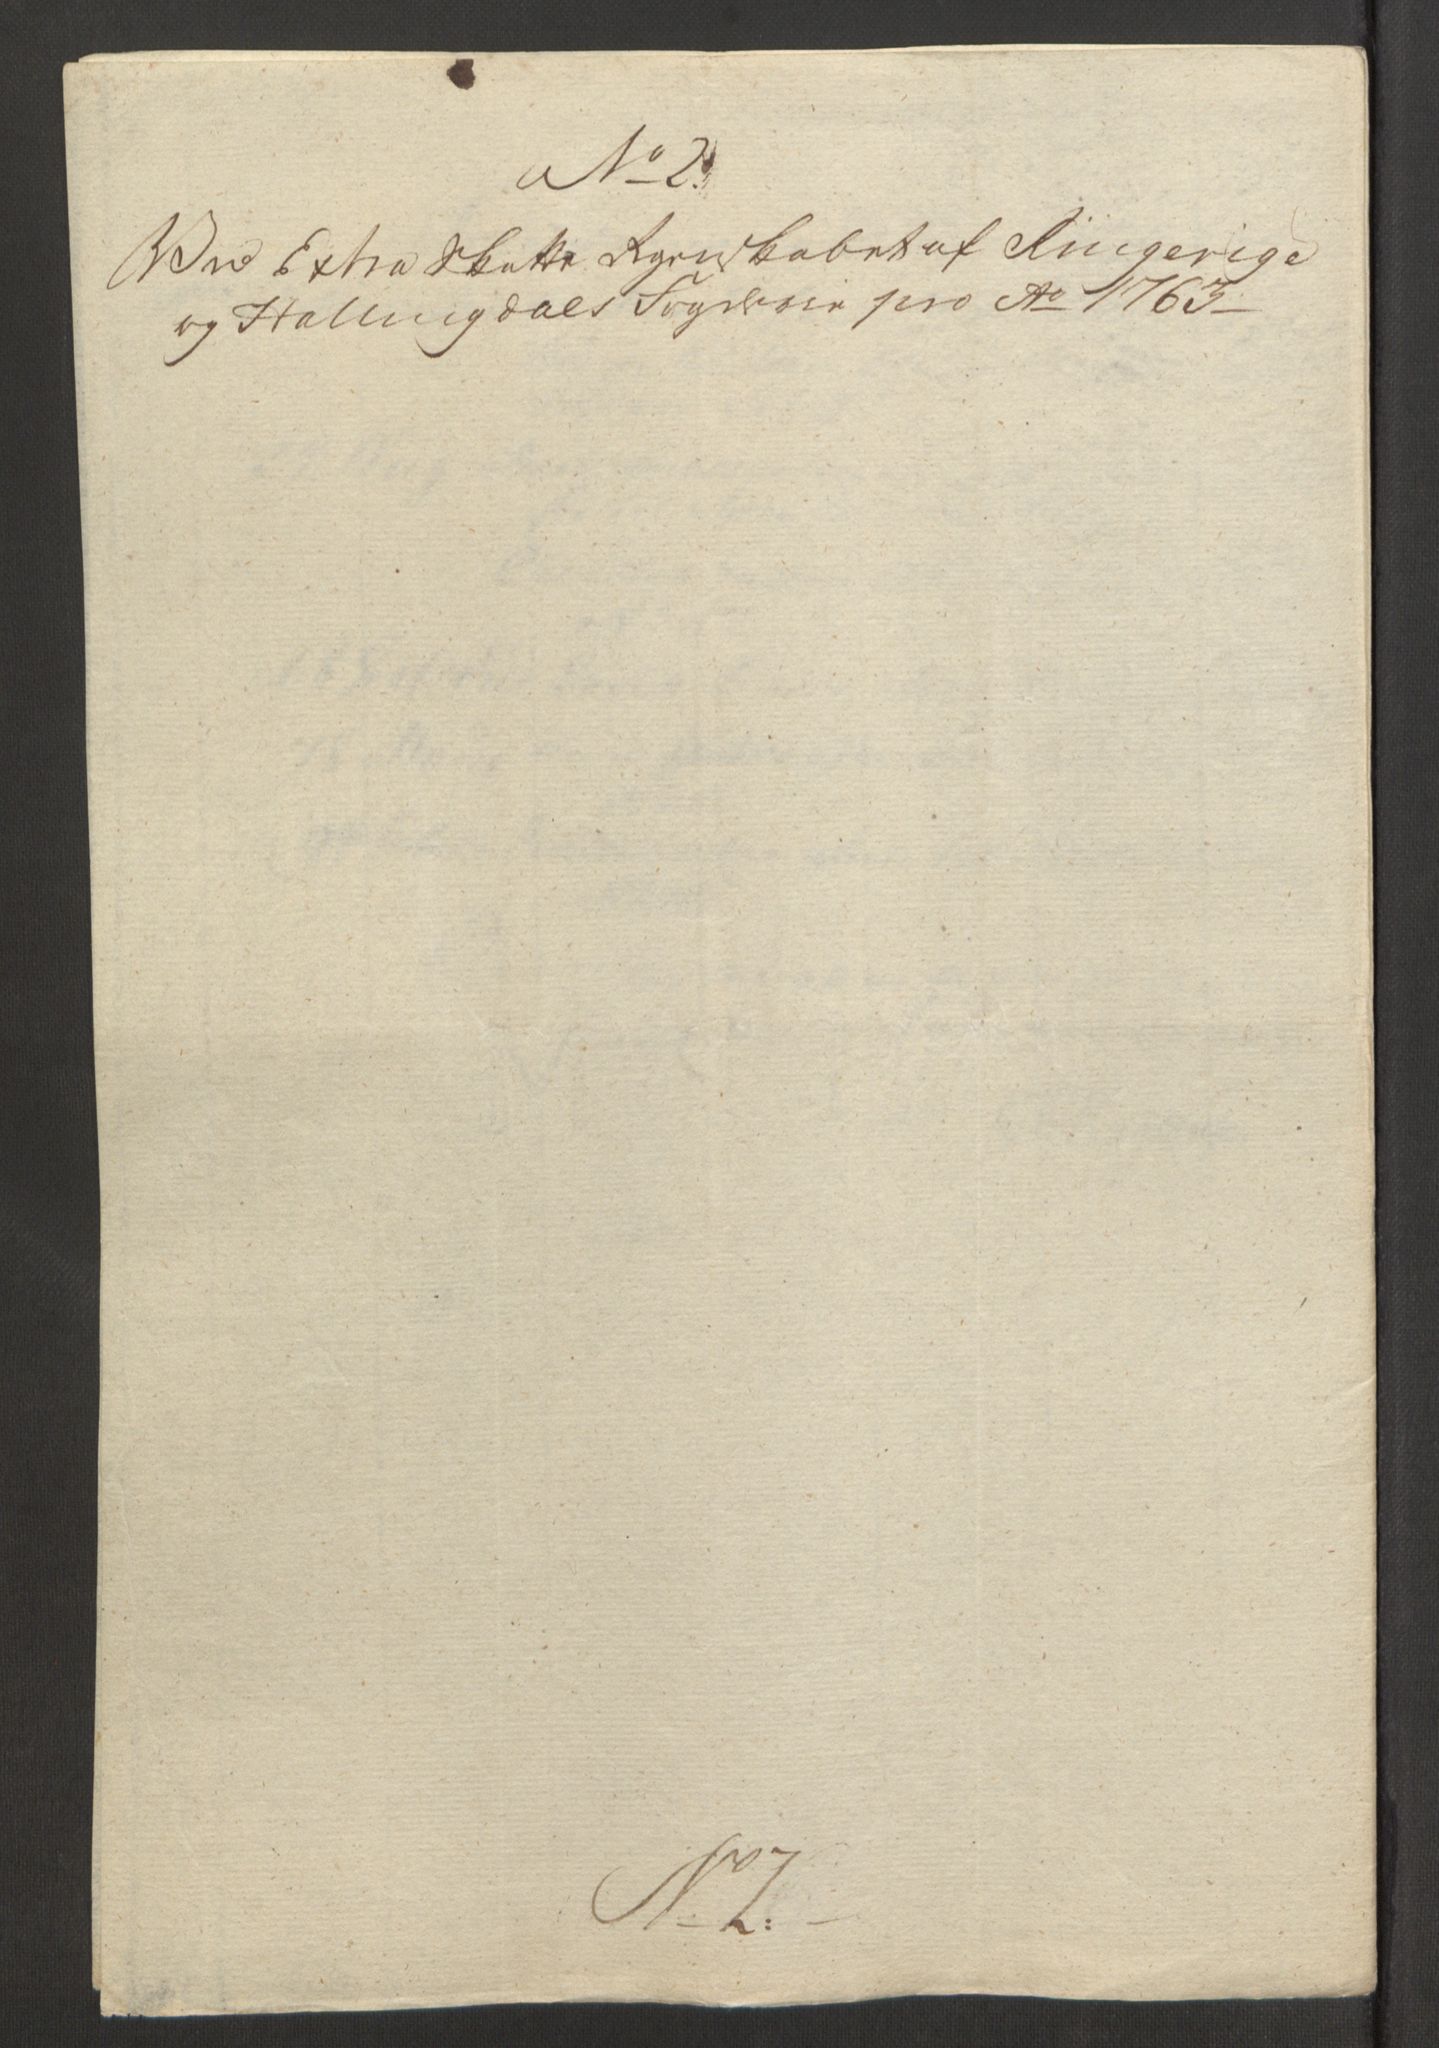 No 2.
Ved Extra Skatte Regenskabet af Ringerige
og Hallingdals Fogderie pro Ao 1763
No 2: